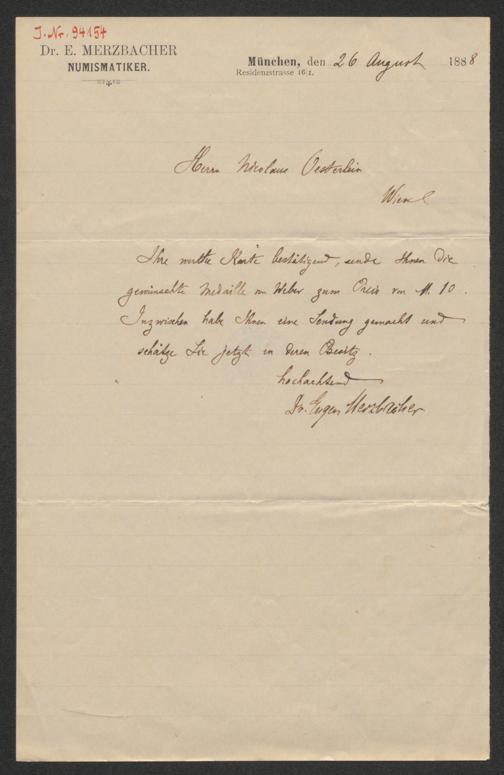 J. Nr. 94154
Dr. E. MERZBACHER
NUMISMATIKER.
München, den 26 August 1888
Residenzstrasse 16/1.
Herrn Nicolaus Oesterlein
Wien
Ihre werthe Karte bestätigend, sende Ihnen die
gewünschte Medaille von Weber zum Preis von M. 10.
Inzwischen habe Ihnen eine Sendung gemacht und
schätze Sie jetzt in deren Besitz.
Hochachtend
Dr. Eugen Merzbacher